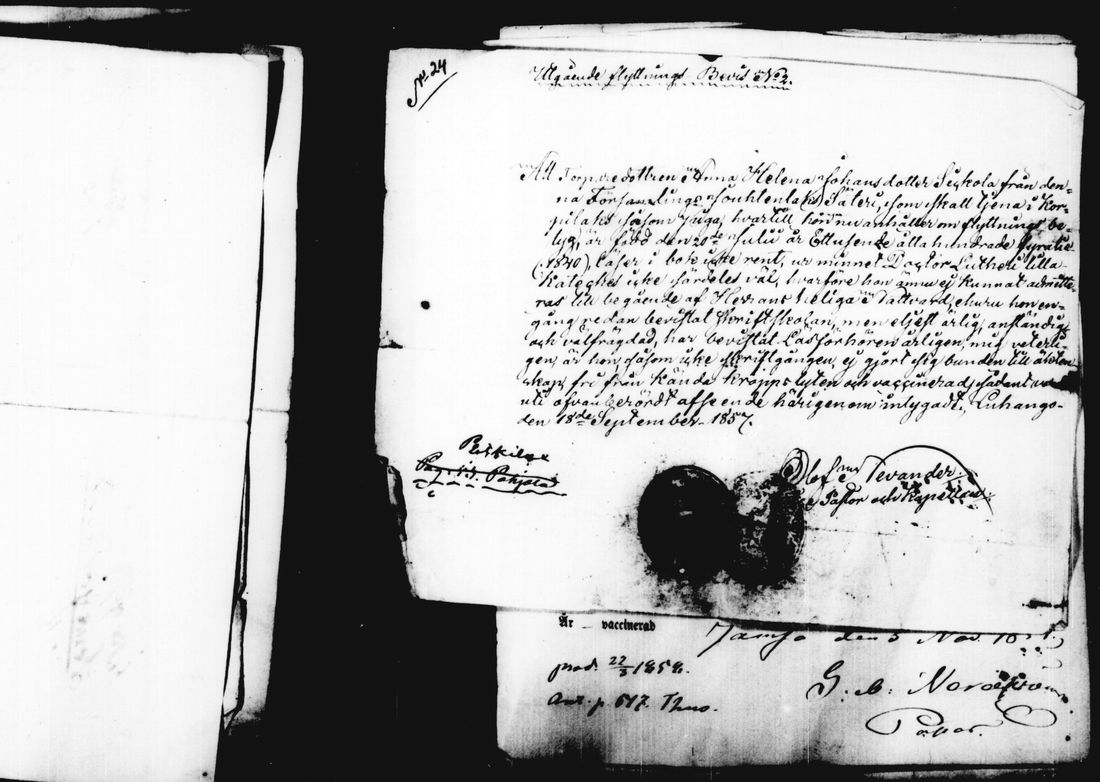 No. 24
Utgående flyttnings-Bevis No 2.
Att Torparedottren Anna Helena Johansdotter Seskola från den-
na Församlings Jouhtenlaks Säteri, som skall tjena i Kor-
pilaks såsom piga, hvartill hon nu anhåller om flyttnings be-
tyg, är född den 20de Julii år Ettusende åtta hundrade fyratio
(1840), läser i bok icke rent, ur minnet Doctor Lutheri lilla
Kateches icke särdeles väl, hvarföre hon ännu ej kunnat admitte-
ras till begående af Herrans heliga Nattvard, ehuru hon en-
gång redan bevistat Skriftskolan, men eljest ärlig, anständig
och välfrägdad, har bevistat Läsförhören årligen, mig veterli-
gen, är hon, såsom icke skriftgången, ej gjort sig bunden till äkten-
skap, fri från kända kroppslyten och vaccinerad, sådant
uti ofvanberördt afseende härigenom intygadt. Luhango-
den 18de September 1857.
Pag.
Olof Tevander.
Pastor och Kapellan
Är – vaccinerad
Jämsä den 5 Nov.
prod. 22/3 1858.
Ant. p 617. Thuo.
G. A. Nordström
Pastor.